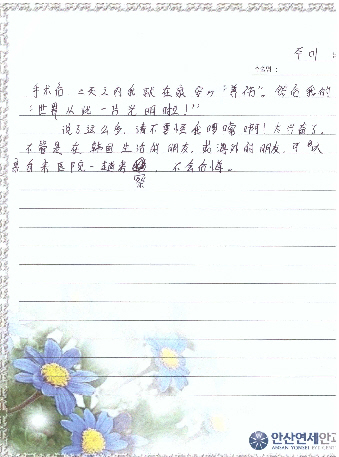 주미
手术后 二天之内我就在家安心"养伤"。然后我的
"世界从此一片光明啦!"
说了这么多，请不要怪我啰嗦啊！太兴奋了，
不管是在韩国生活的朋友，海外的朋友，可以
亲自来医院一趟，不会后悔。
안산연세안과
ANSAN YONSEI EYE CLINIC